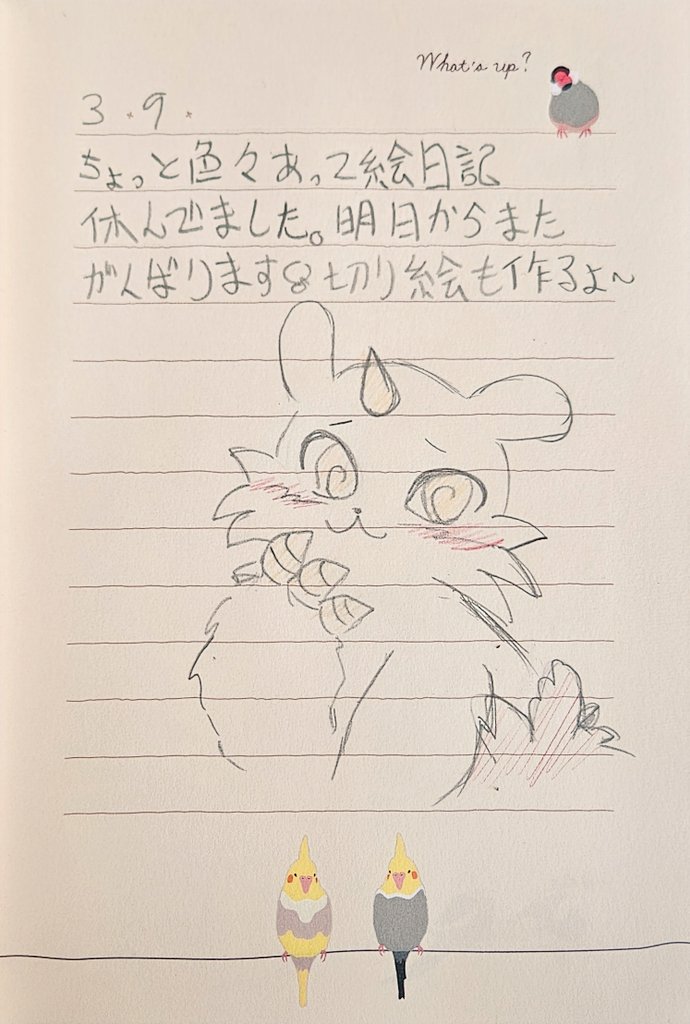 What's up?
3.9.
ちょっと色々あって絵日記
休んでました。明日からまた
がんばります 切り絵も作るよ〜